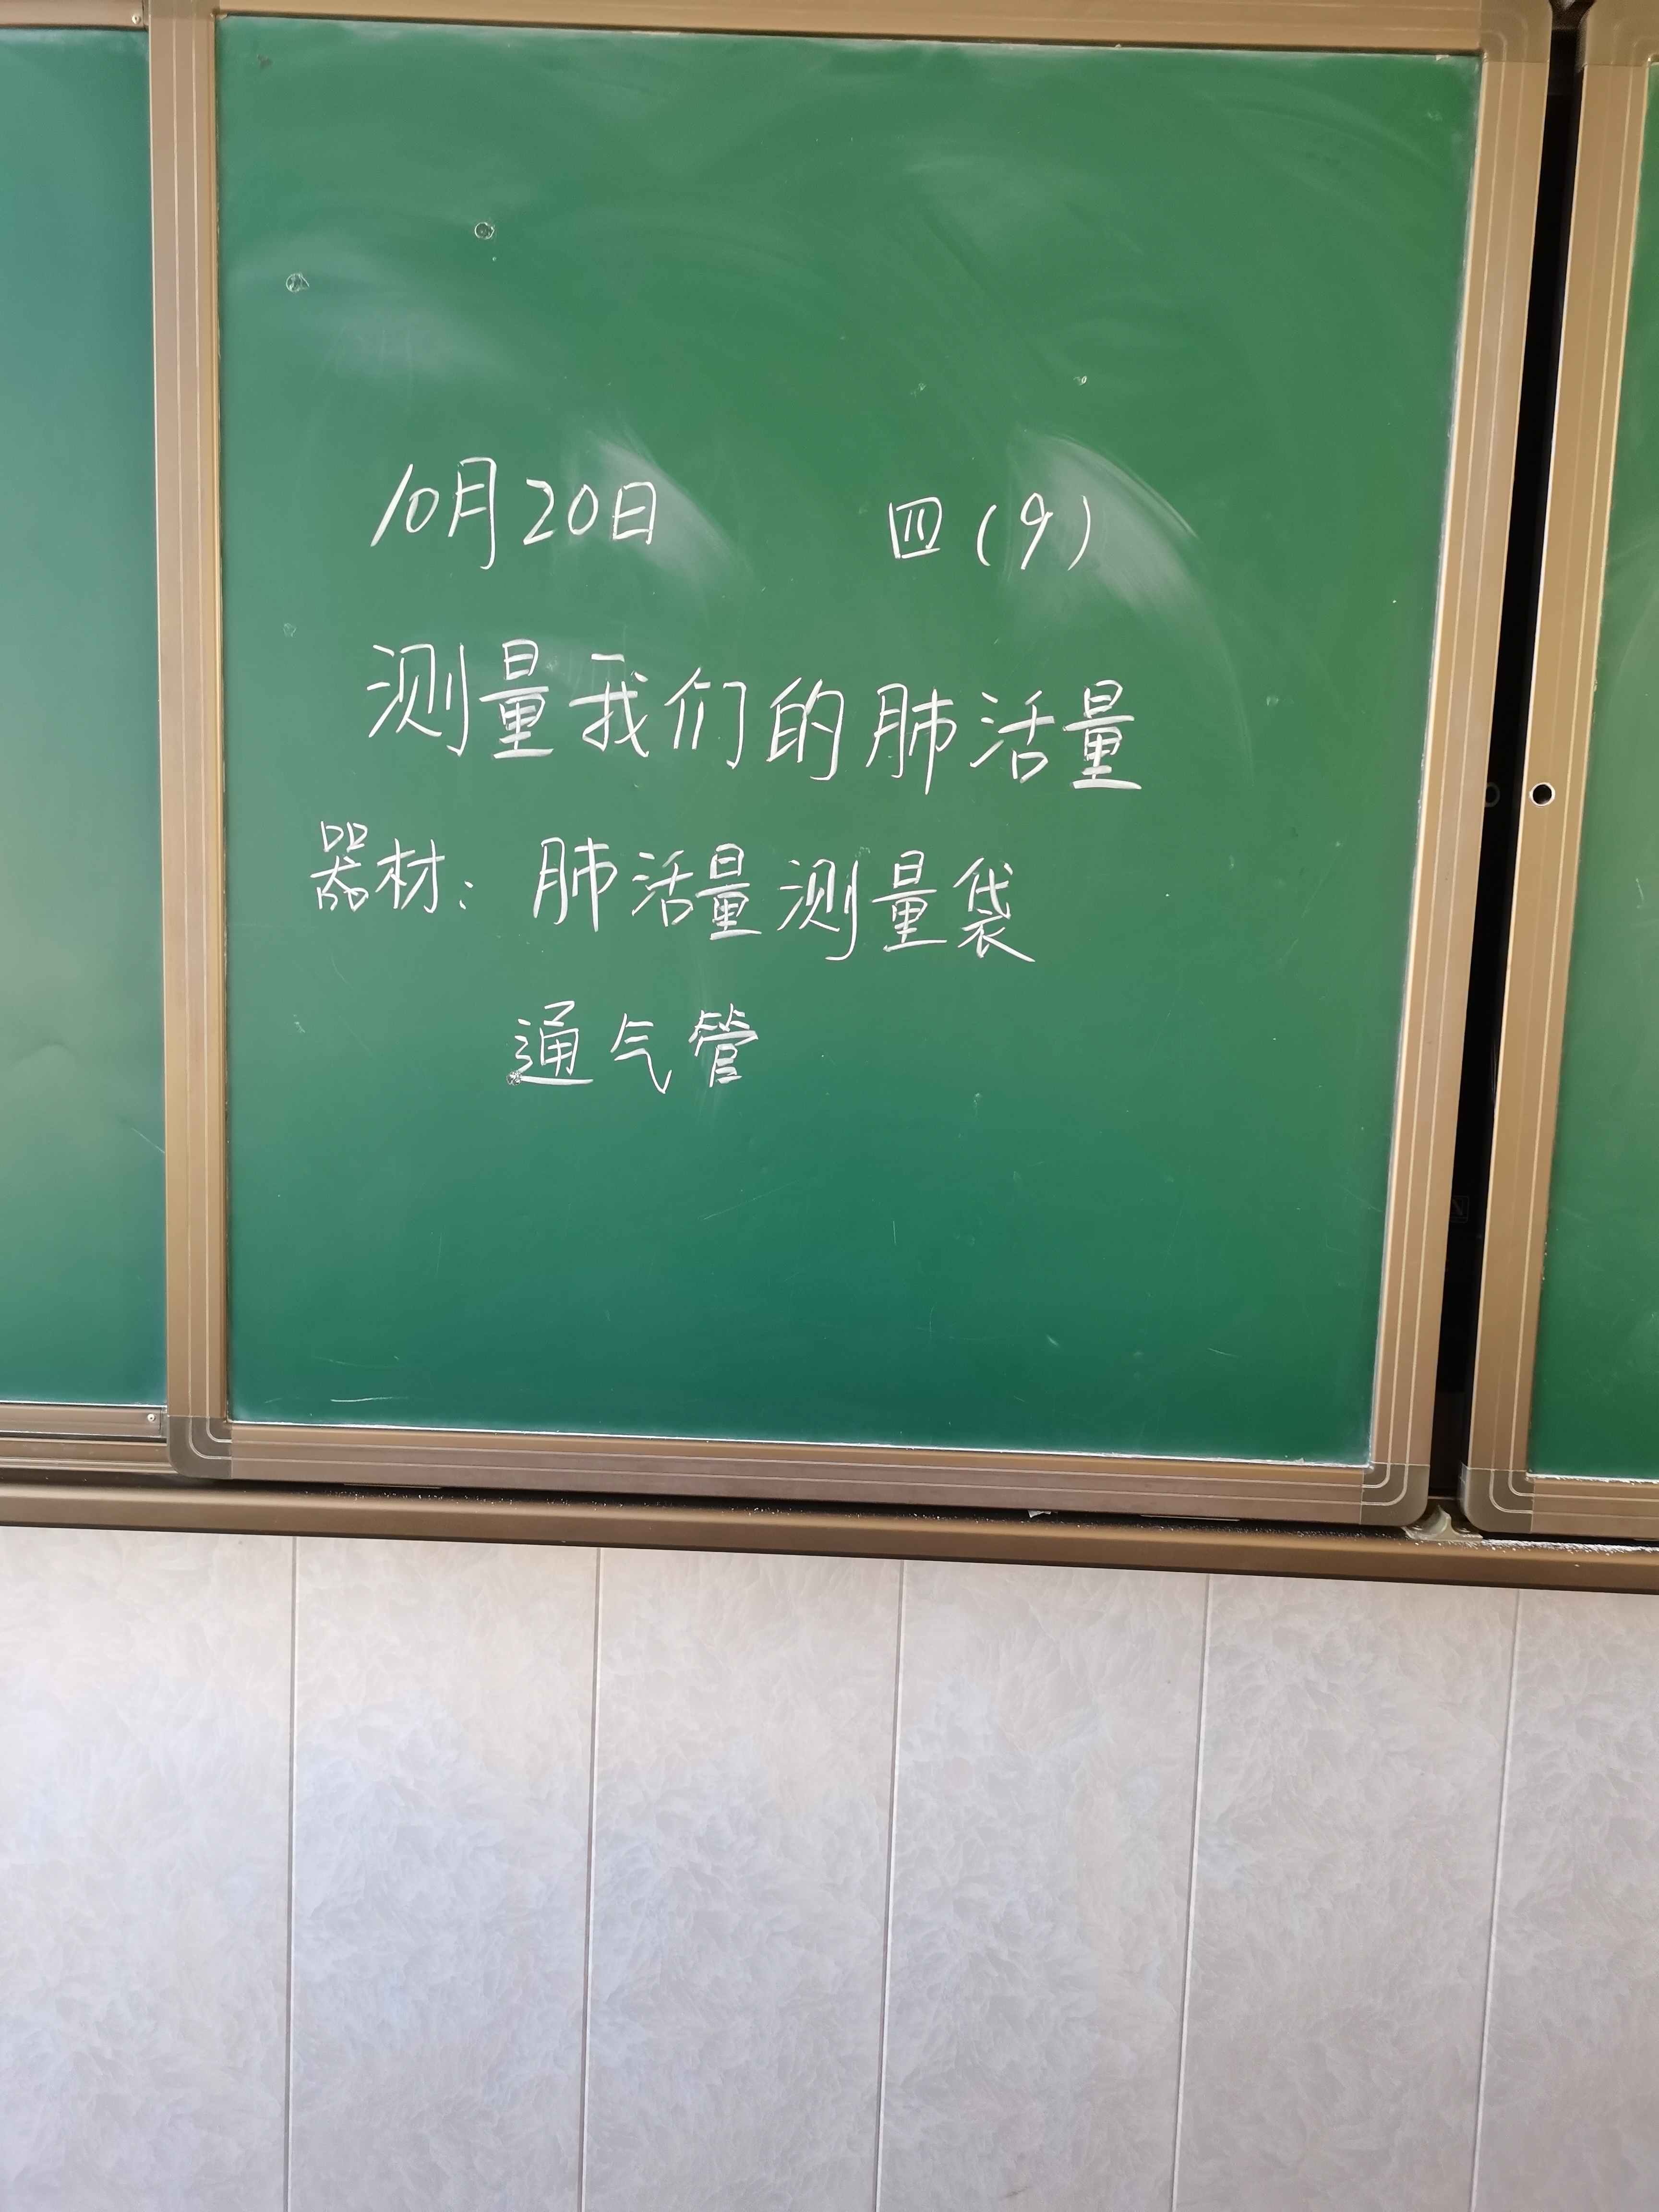 10月20日 四(9)
测量我们的肺活量
器材：肺活量测量袋
通气管